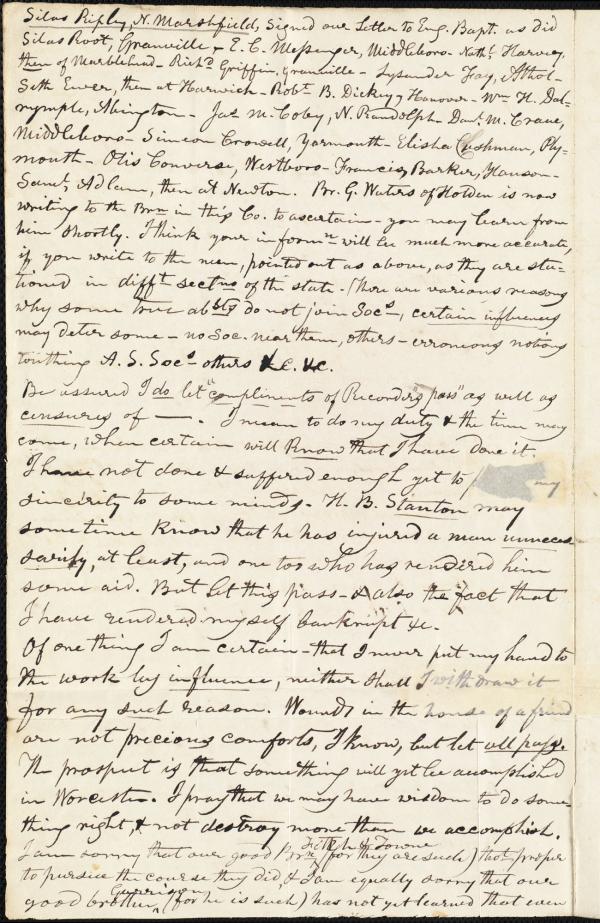 Silas Ripley, N. Marshfield, signed our Letter to Eng. Bapt. as did
Silas Root, Granville & E. C. Messenger, Middleboro - Nathl. Harvey,
then of Marblehead - Richd. Griffin, Granville - Lysander Fay, Athol -
Seth Ewer, then at Harwich - Robt. B. Dickey, Hanover - Wm. H. Dal-
rymple, Abington - Jas. M. Coby, N. Randolph - Danl. M. Crane,
Middleboro - Simeon Crowell, Yarmouth - Elisha Cushman, Ply-
mouth - Otis Converse, Westboro - Francis Barker, Hanson -
Saml. Adlam, then at Newton. Br. G. Waters of Holden is now
writing to the Brn in this Co. to ascertain - you may learn from
him shortly. I think your informn will be much more accurate,
if you write to the men, pointed out as above, as they are sta-
tioned in difft sectns of the state. There are various reasons
why some true abstts do not join Socs, certain influences
may deter some - no Soc. near them, others - erroneous notions
touthing A. S. Socs others &c. &c.
Be assured I do let "compliments of Recorders pass" as well as
censures of —. I mean to do my duty & the time may
come, when certain will know that I have done it.
I have not done & suffered enough yet to my
sincirity to some minds. H. B. Stanton may
sometime know that he has injured a man unneces
sarily, at least, and one too who has rendered him
some aid. But let this pass - & also the fact that
I have rendered myself bankrupt &c.
Of one thing I am certain - that I never put my hand to
the work by influence, neither shall I withdraw it
for any such reason. Wounds in the house of a friend
are not precious comforts, I know, but let all pass.
The prospect is that something will yet be accomplished
in Worcester. I pray that we may have wisdom to do some
thing right, & not destroy more than we accomplish.
I am sorry that our good Brn Fitch & Towne (for they are such) that proper
to pursue the course they did, & I am equally sorry that our
good brother Garrison (for he is such) has not yet learned that even